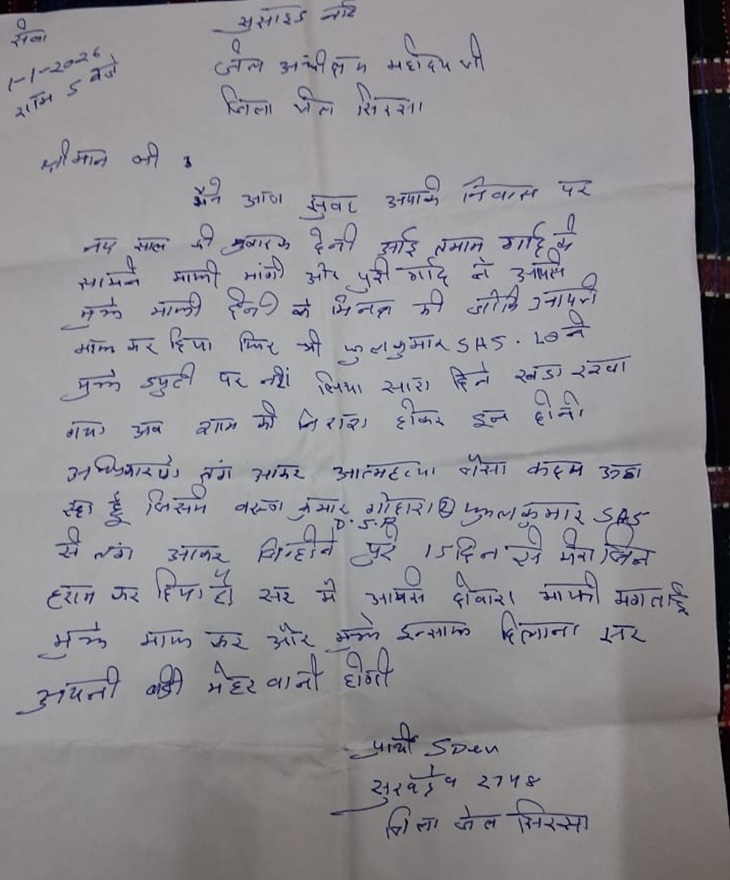 सुसाइड नोट
सेवा
1-1-2026
शाम 5 बजे
जेल अधीक्षक महोदय जी
जिला जेल सिरसा
श्रीमान जी
मैने आज सुबह आपके निवास पर
नए साल की मुबारक देनी आई तमाम गार्द के
सामने माफी मांगी और पुरी गार्द ने आपसे
मुझे माफी देनी के मिनत की जोकि आपने
माफ कर दिया फिर श्री फुलकुमार SAS. ने
मुझे डयुटी पर नहीं लिया सारा दिन खडा रखा
गया अब शाम को निराश होकर इन दोनो
तंग आकर आत्महत्या जैसा कदम उठा
रहा हूँ जिसमे वरूण कुमार गोदारा फुलकुमार SAS
D.S.P
से तंग आकर जिन्होने पुरे 15 दिन से मेरा जिन
हराम कर दिया है सर मै आपसे दोबारा माफी मगता हूँ
मुझे माफ कर और मुझे इन्साफ दिलाना सर
अपनी बडी मेहरवानी होगी
प्रार्थी
सुखदेव 2748
जिला जेल सिरसा